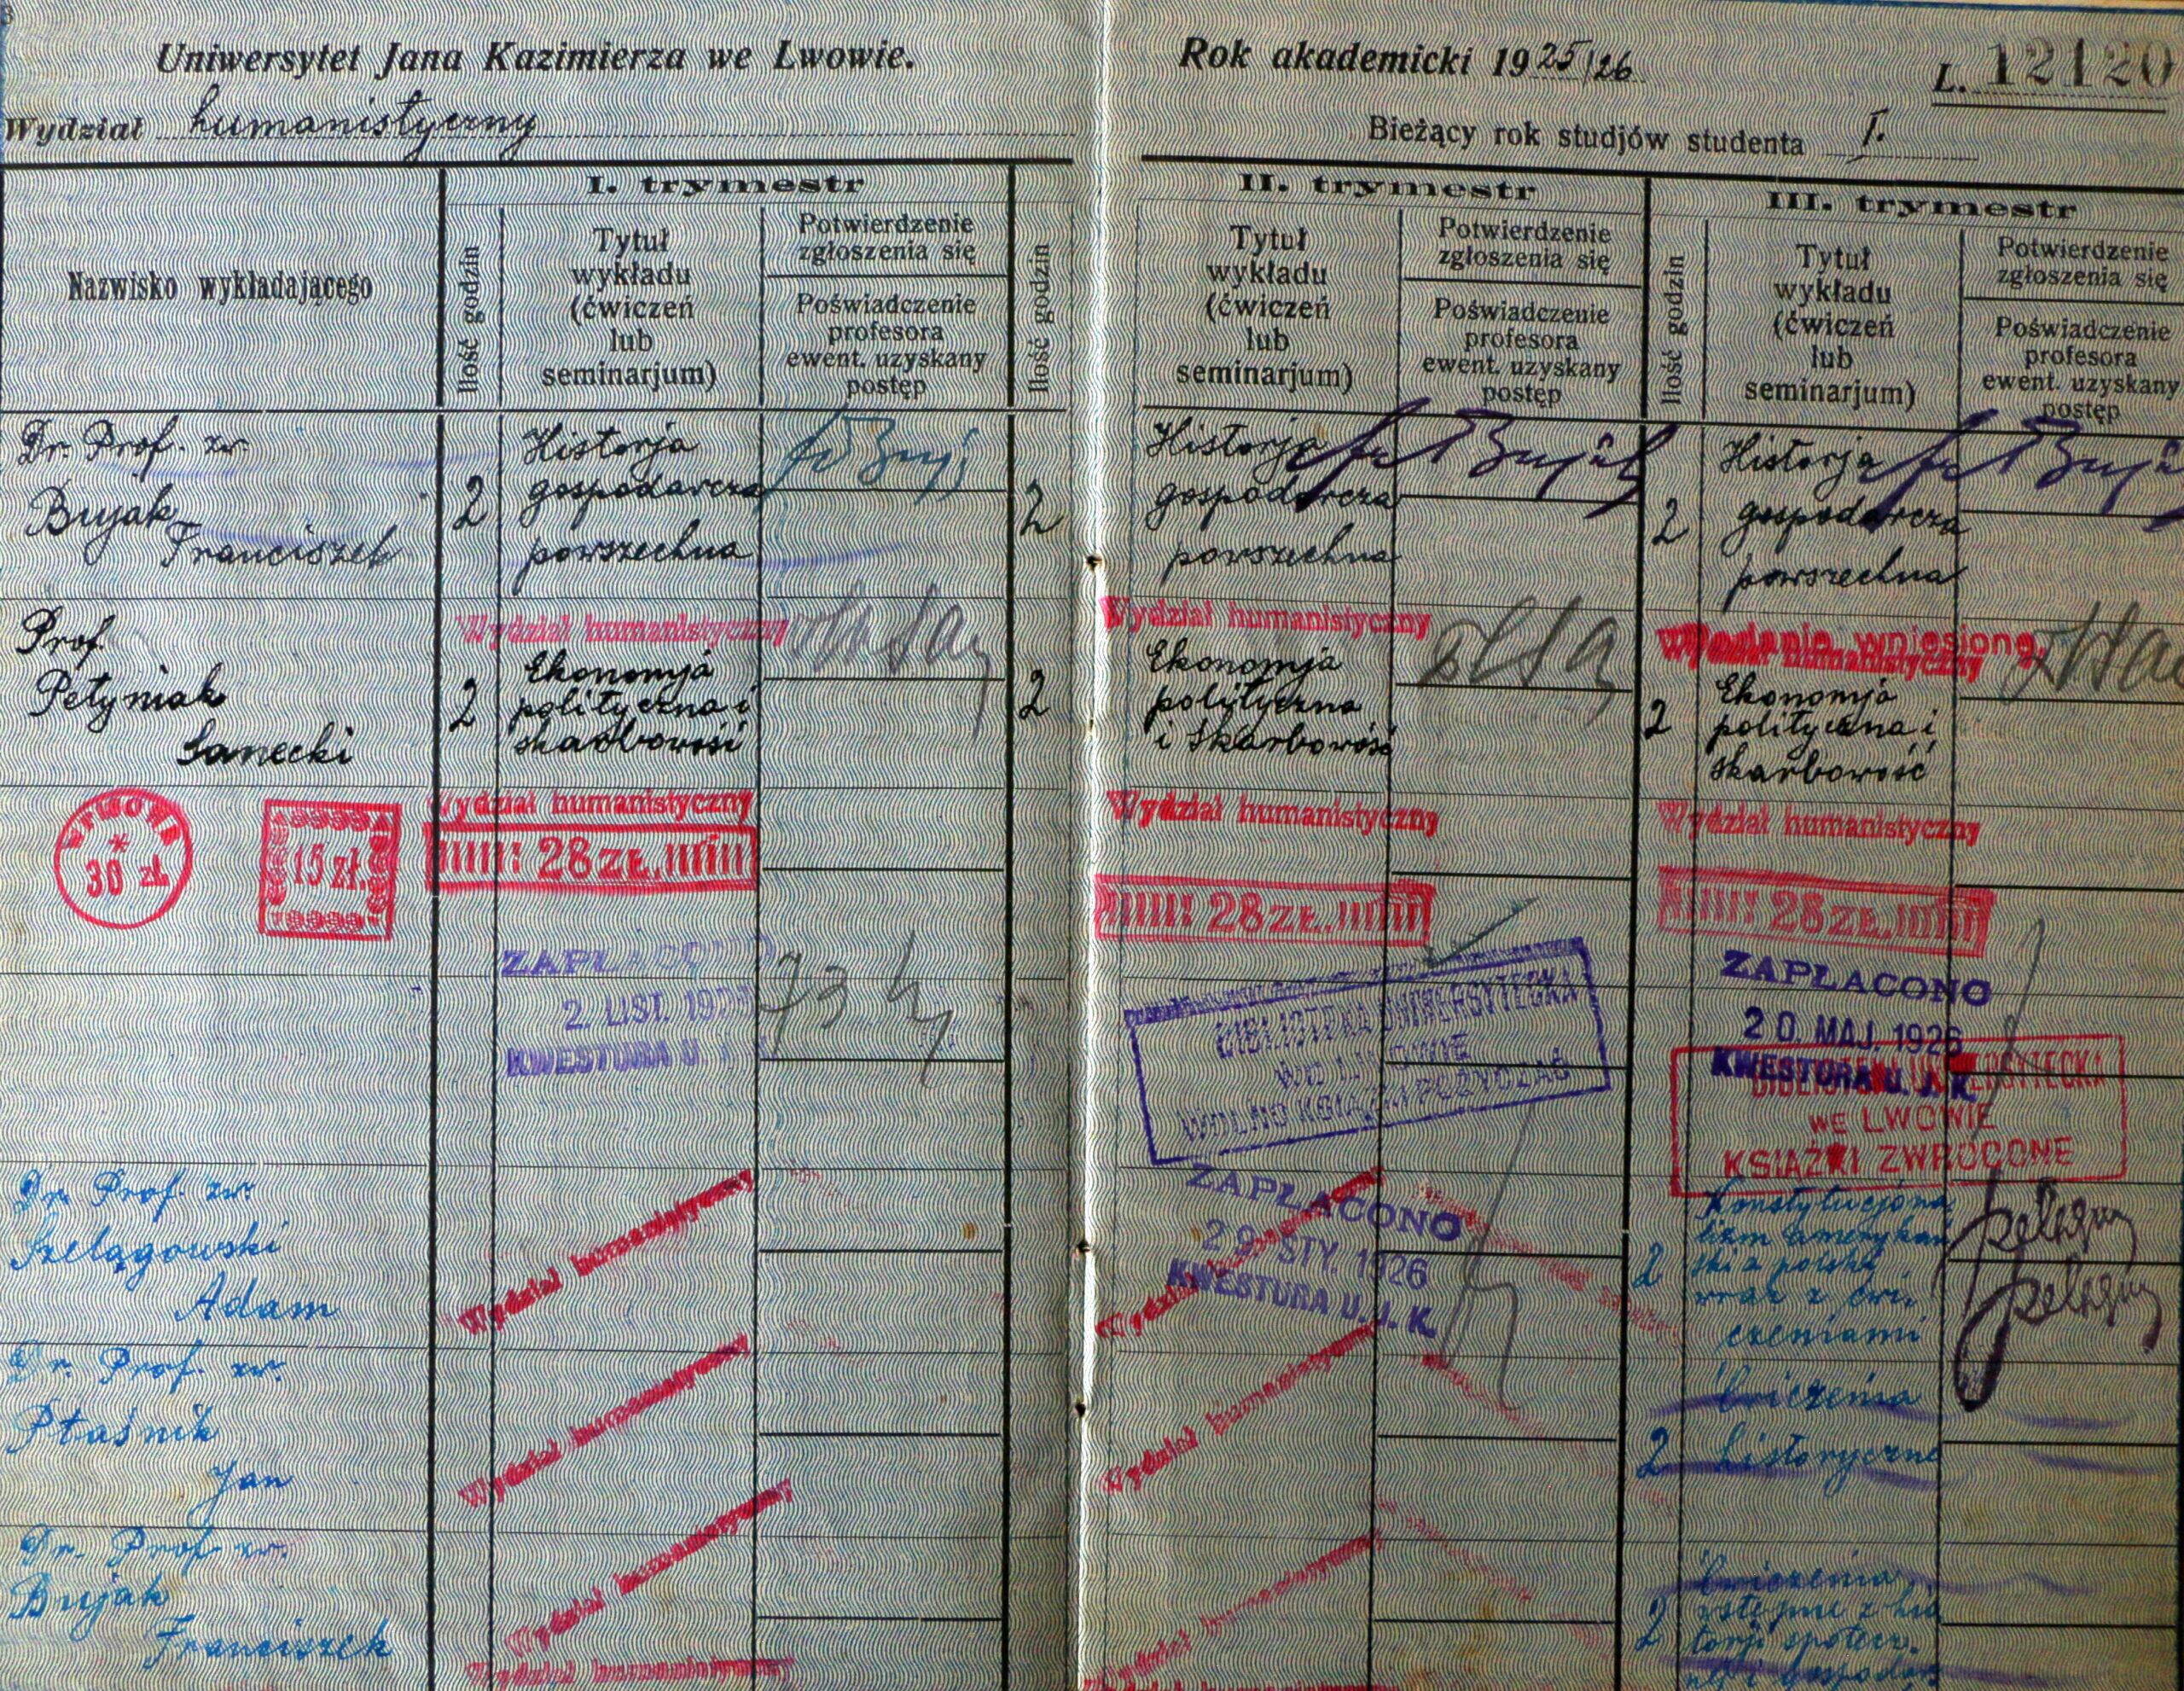 Uniwersytet Jana Kazimierza we Lwowie.
Wydział humanistyczny
Rok akademicki 1925/26
L. 12120
Bieżący rok studjów studenta I.
Nazwisko wykładającego
I. trymestr
Ilość godzin
Tytuł
wykładu
(ćwiczeń
lub
seminarjum)
Potwierdzenie
zgłoszenia się
Poświadczenie
profesora
ewent. uzyskany
postęp
II. trymestr
Ilość godzin
Tytuł
wykładu
(ćwiczeń
lub
seminarjum)
Potwierdzenie
zgłoszenia się
Poświadczenie
profesora
ewent. uzyskany
postęp
III. trymestr
Ilość godzin
Tytuł
wykładu
(ćwiczeń
lub
seminarjum)
Potwierdzenie
zgłoszenia się
Poświadczenie
profesora
ewent. uzyskany
postęp
Dr. Prof. zw.
Bujak
Franciszek
2
Historja
gospodarcza
powszechna
2
Historja
gospodarcza
powszechna
2
Historja
gospodarcza
powszechna
Prof.
Petyniak
Sanecki
Wydział humanistyczny
2
Ekonomja
polityczna i
skarbowość
Wydział humanistyczny
2
Ekonomja
polityczna
i Skarbowość
Podanie wniesione
humanistyczny
2
Ekonomja
polityczna i
skarbowość
30 zł.
15 zł.
Wydział humanistyczny
28 ZŁ.
Wydział humanistyczny
28 ZŁ.
Wydział humanistyczny
28 ZŁ.
ZAPŁACONO
2. LIST. 192
KWESTURA U.
73
BIBLIOTEKA UNIWERSYTECKA
WE LWOWIE
WOLNO KSIĄŻKI POŻYCZAĆ
ZAPŁACONO
20. MAJ. 1926
KWESTURA U. J. K.
WE LWOWIE
KSIĄŻKI ZWRÓCONE
ZAPŁACONO
29. STY. 1926
KWESTURA U. J. K.
Dr. Prof. zw.
Szelągowski
Adam
Wydział humanistyczny
Wydział humanistyczny
2
Konstytucjona
lizm amerykań
ski a polski
wraz z ćwi,
czeniami
Dr. Prof. zw.
Ptaśnik
Jan
Wydział humanistyczny
Wydział humanistyczny
2
Ćwiczenia
historyczne
Dr. Prof. zw.
Bujak
Franciszek
Wydział humanistyczny
Wydział humanistyczny
Wydział humanistyczny
2
Ćwiczenia
wstępne z his
torji społecz.